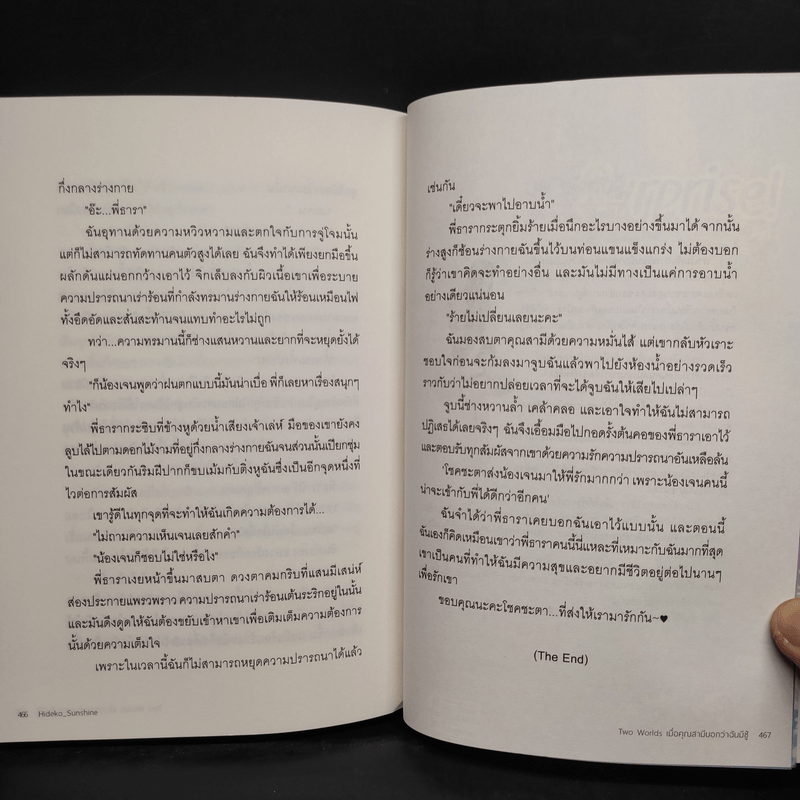 กึ่งกลางร่างกาย
"อ๊ะ...พี่ธารา"
ฉันอุทานด้วยความหวิวหวามและตกใจกับการจู่โจมนั้น
แต่ก็ไม่สามารถทัดทานคนตัวสูงได้เลย ฉันจึงทำได้เพียงยกมือขึ้น
ผลักดันแผ่นอกกว้างเอาไว้ จิกเล็บลงกับผิวเนื้อเขาเพื่อระบาย
ความปรารถนาเร่าร้อนที่กำลังทรมานร่างกายฉันให้ร้อนเหมือนไฟ
ทั้งอึดอัดและสั่นสะท้านจนแทบทำอะไรไม่ถูก
ทว่า...ความทรมานนี้ก็ช่างแสนหวานและยากที่จะหยุดยั้งได้
จริงๆ
"ก็น้องเจนพูดว่าฝนตกแบบนี้มันน่าเบื่อ พี่ก็เลยหาเรื่องสนุกๆ
ทำไง"
พี่ธารากระซิบที่ข้างหูด้วยน้ำเสียงเจ้าเล่ห์ มือของเขายังคง
ลูบไล้ไปตามดอกไม้งามที่อยู่กึ่งกลางร่างกายฉันจนส่วนนั้นเปียกชุ่ม
ในขณะเดียวกันริมฝีปากก็ขบเม้มกับติ่งหูฉันซึ่งเป็นอีกจุดหนึ่งที่
ไวต่อการสัมผัส
เขารู้ดีในทุกจุดที่จะทำให้ฉันเกิดความต้องการได้...
"ไม่ถามความเห็นเจนเลยสักคำ"
"น้องเจนก็ชอบไม่ใช่หรือไง"
พี่ธาราเงยหน้าขึ้นมาสบตา ดวงตาคมกริบที่แสนมีเสน่ห์
ส่องประกายแพรวพราว ความปรารถนาเร่าร้อนเต้นระริกอยู่ในนั้น
และมันดึงดูดให้ฉันต้องขยับเข้าหาเขาเพื่อเติมเต็มความต้องการ
นั้นด้วยความเต็มใจ
เพราะในเวลานี้ฉันก็ไม่สามารถหยุดความปรารถนาได้แล้ว
466 Hideko_Sunshine
เช่นกัน
"เดี๋ยวจะพาไปอาบน้ำ"
พี่ธารากระตุกยิ้มร้ายเมื่อนึกอะไรบางอย่างขึ้นมาได้ จากนั้น
ร่างสูงก็ช้อนร่างกายฉันขึ้นไว้บนท่อนแขนแข็งแกร่ง ไม่ต้องบอก
ก็รู้ว่าเขาคิดจะทำอย่างอื่น และมันไม่มีทางเป็นแค่การอาบน้ำ
อย่างเดียวแน่นอน
"ร้ายไม่เปลี่ยนเลยนะคะ"
ฉันมองสบตาคุณสามีด้วยความหมั่นไส้ แต่เขากลับหัวเราะ
ชอบใจก่อนจะก้มลงมาจูบฉันแล้วพาไปยังห้องน้ำอย่างรวดเร็ว
ราวกับว่าไม่อยากปล่อยเวลาที่จะได้จูบฉันให้เสียไปเปล่าๆ
จูบนี้ช่างหวานล้ำ เคล้าคลอ และเอาใจทำให้ฉันไม่สามารถ
ปฏิเสธได้เลยจริงๆ ฉันจึงเอื้อมมือไปกอดรั้งต้นคอของพี่ธาราเอาไว้
และตอบรับทุกสัมผัสจากเขาด้วยความรักความปรารถนาอันเหลือล้น
'โชคชะตาส่งน้องเจนมาให้พี่รักมากกว่า เพราะน้องเจนคนนี้
น่าจะเข้ากับพี่ได้ดีกว่าอีกคน'
ฉันจำได้ว่าพี่ธาราเคยบอกฉันเอาไว้แบบนั้น และตอนนี้
ฉันเองก็คิดเหมือนเขาว่าพี่ธาราคนนี้นี่แหละที่เหมาะกับฉันมากที่สุด
เขาเป็นคนที่ทำให้ฉันมีความสุขและอยากมีชีวิตอยู่ต่อไปนานๆ
เพื่อรักเขา
ขอบคุณนะคะโชคชะตา...ที่ส่งให้เรามารักกัน~♥
(The End)
Two Worlds เมื่อคุณสามีบอกว่าฉันมีชู้ 467